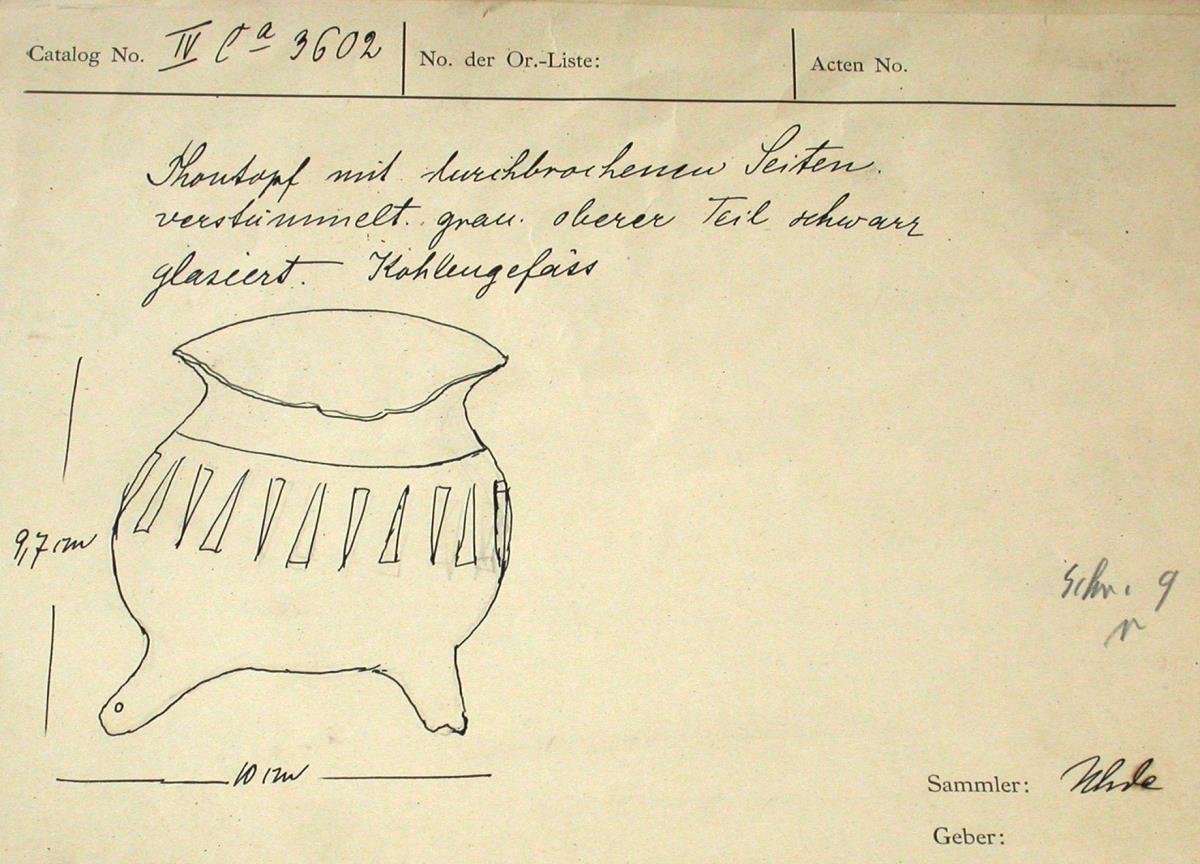 Catalog No. IV Ca 3602
No. der Or.-Liste:
Acten No.
Thontopf mit durchbrochenen Seiten.
verstümmelt. grau. oberer Teil schwarz
glasiert. Kohlengefäss
9,7 cm
10 cm
Schr. 9
Sammler: Uhde
Geber: